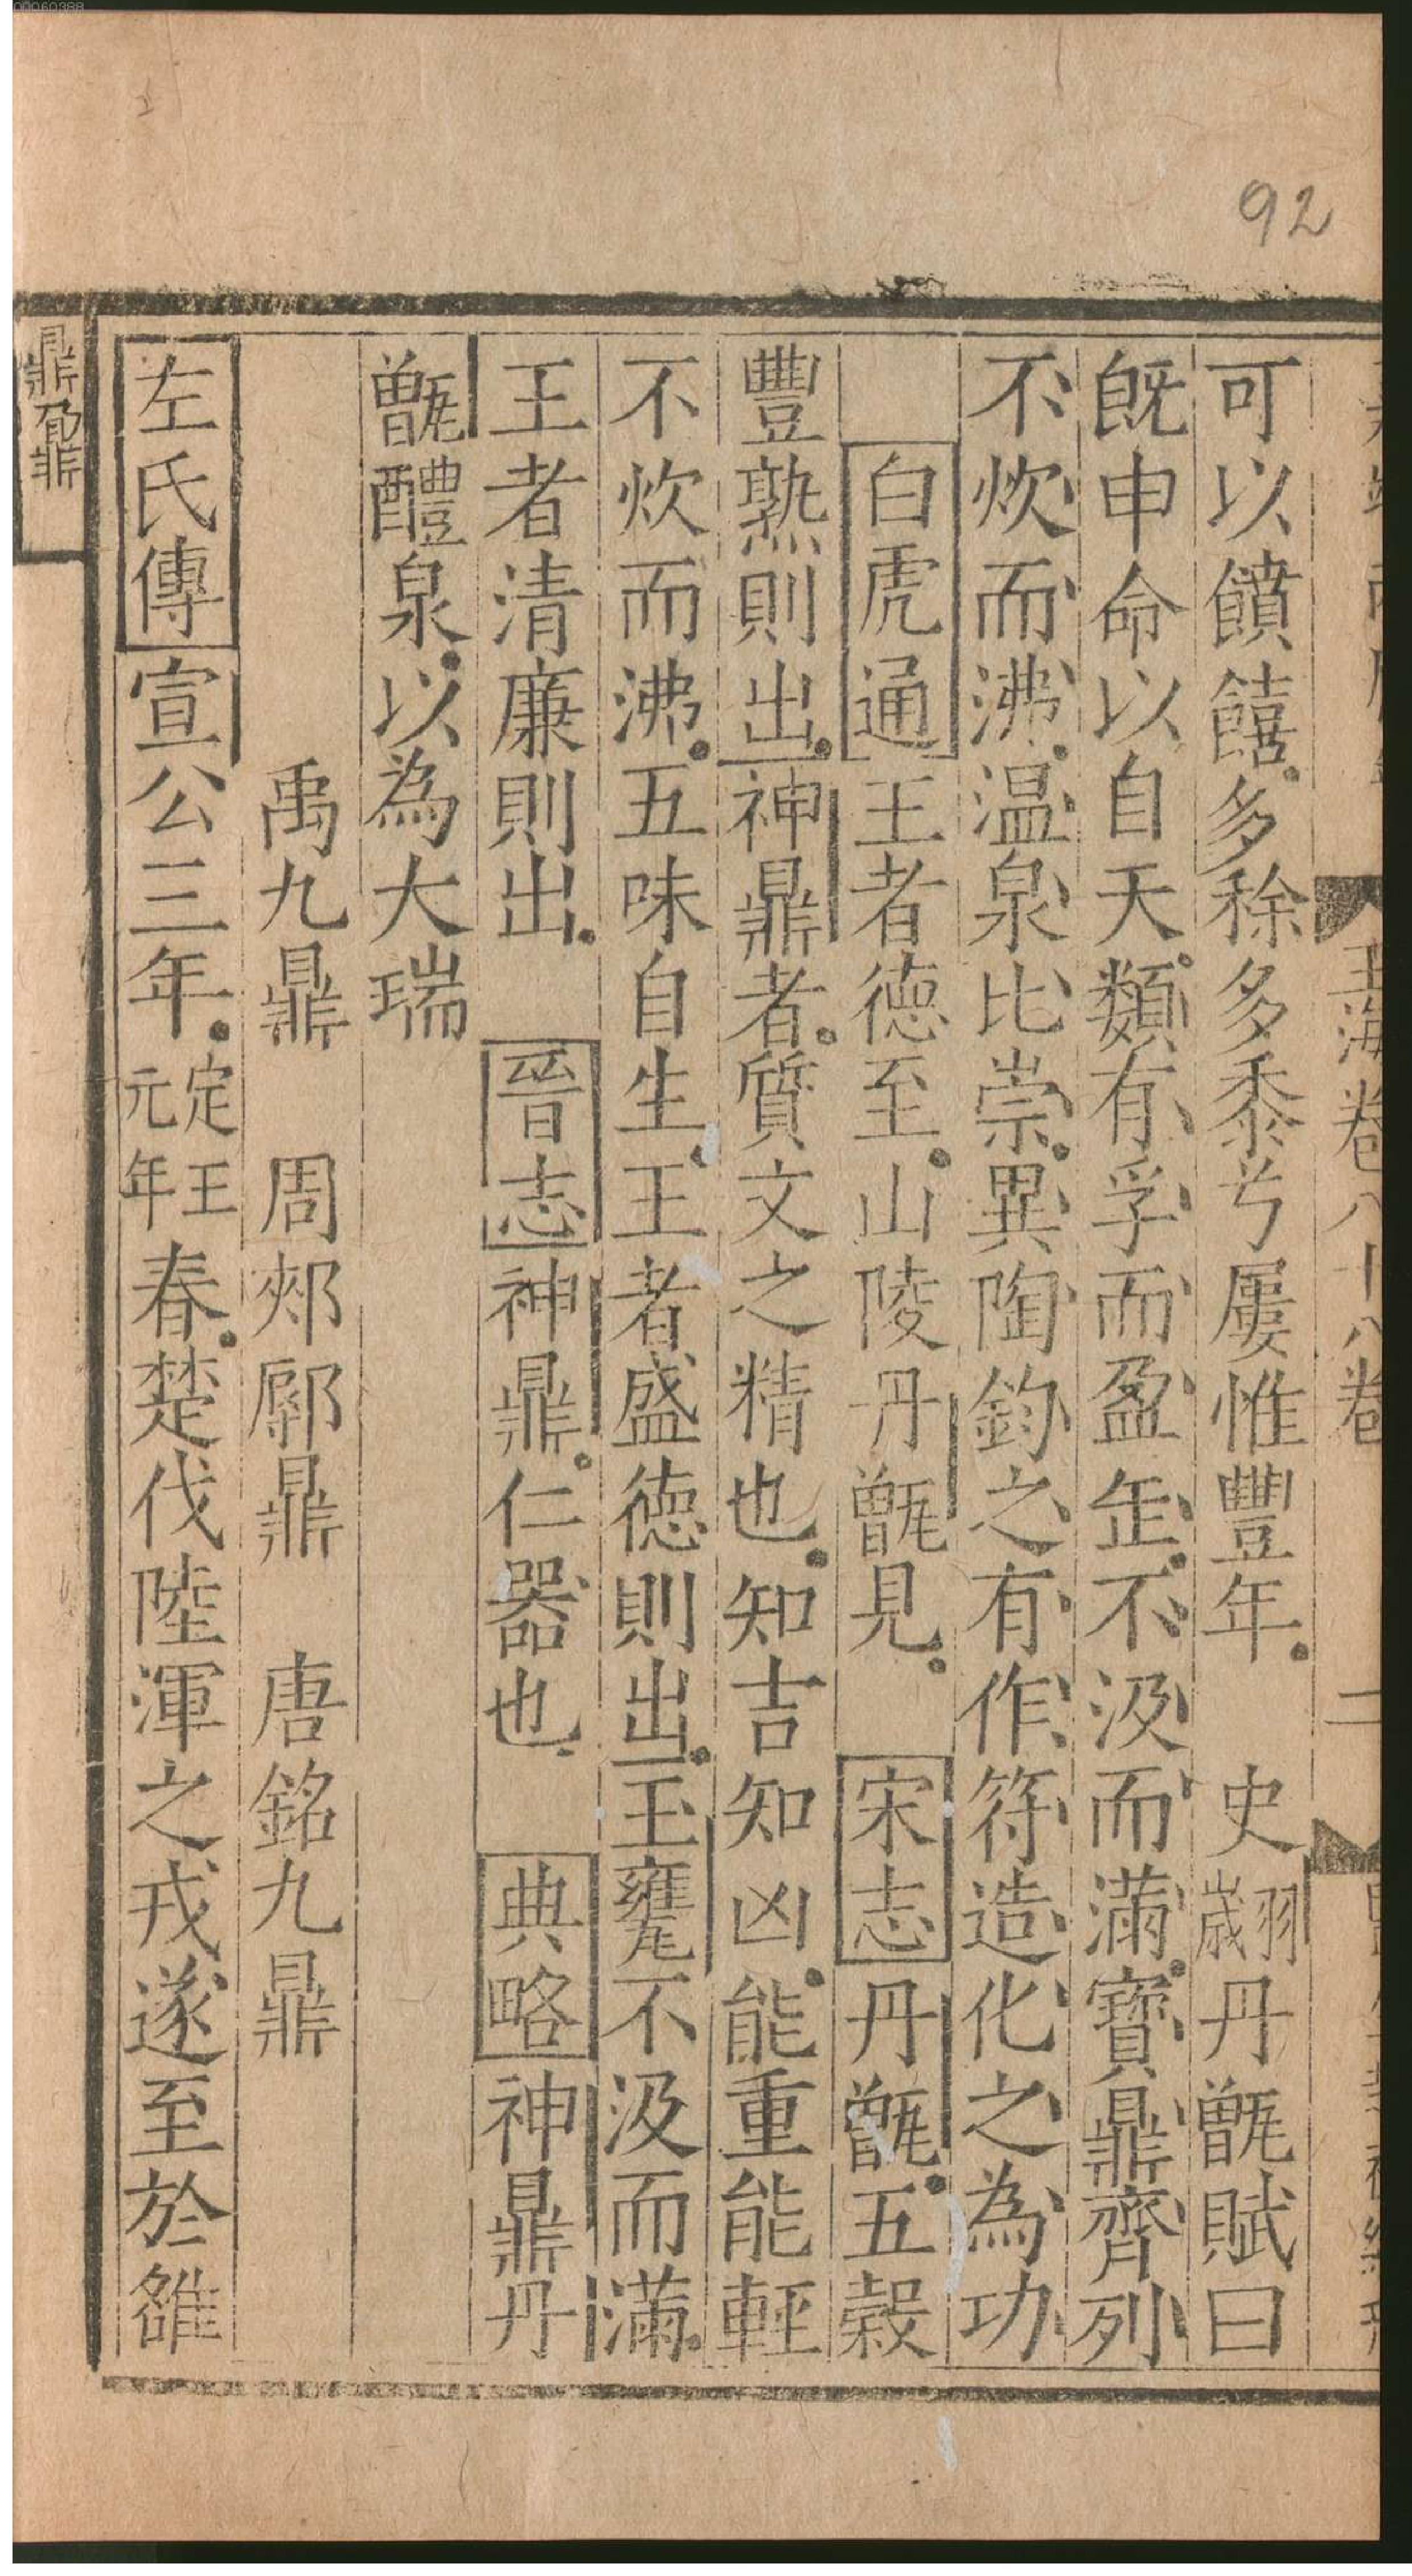 00060388
92
玉海卷八十八卷
二
可以饙饎多稌多黍兮屢惟豐年史翙歲丹甑賦曰
旣申命以自天類有孚而盈缶不汲而滿寶鼎齊列
不炊而沸温泉比崇異陶鈞之有作符造化之為功
白虎通王者德至山陵丹甑見宋志丹甑五穀
豐熟則出神鼎者質文之精也知吉知凶能重能輕
不炊而沸五味自生王者盛德則出玉甕不汲而滿
王者清廉則出晉志神鼎仁器也典略神鼎丹
甑醴泉以為大瑞
禹九鼎周郟鄏鼎唐銘九鼎
左氏傳宣公三年定王元年春楚伐陸渾之戎遂至於雒
鼎鼐